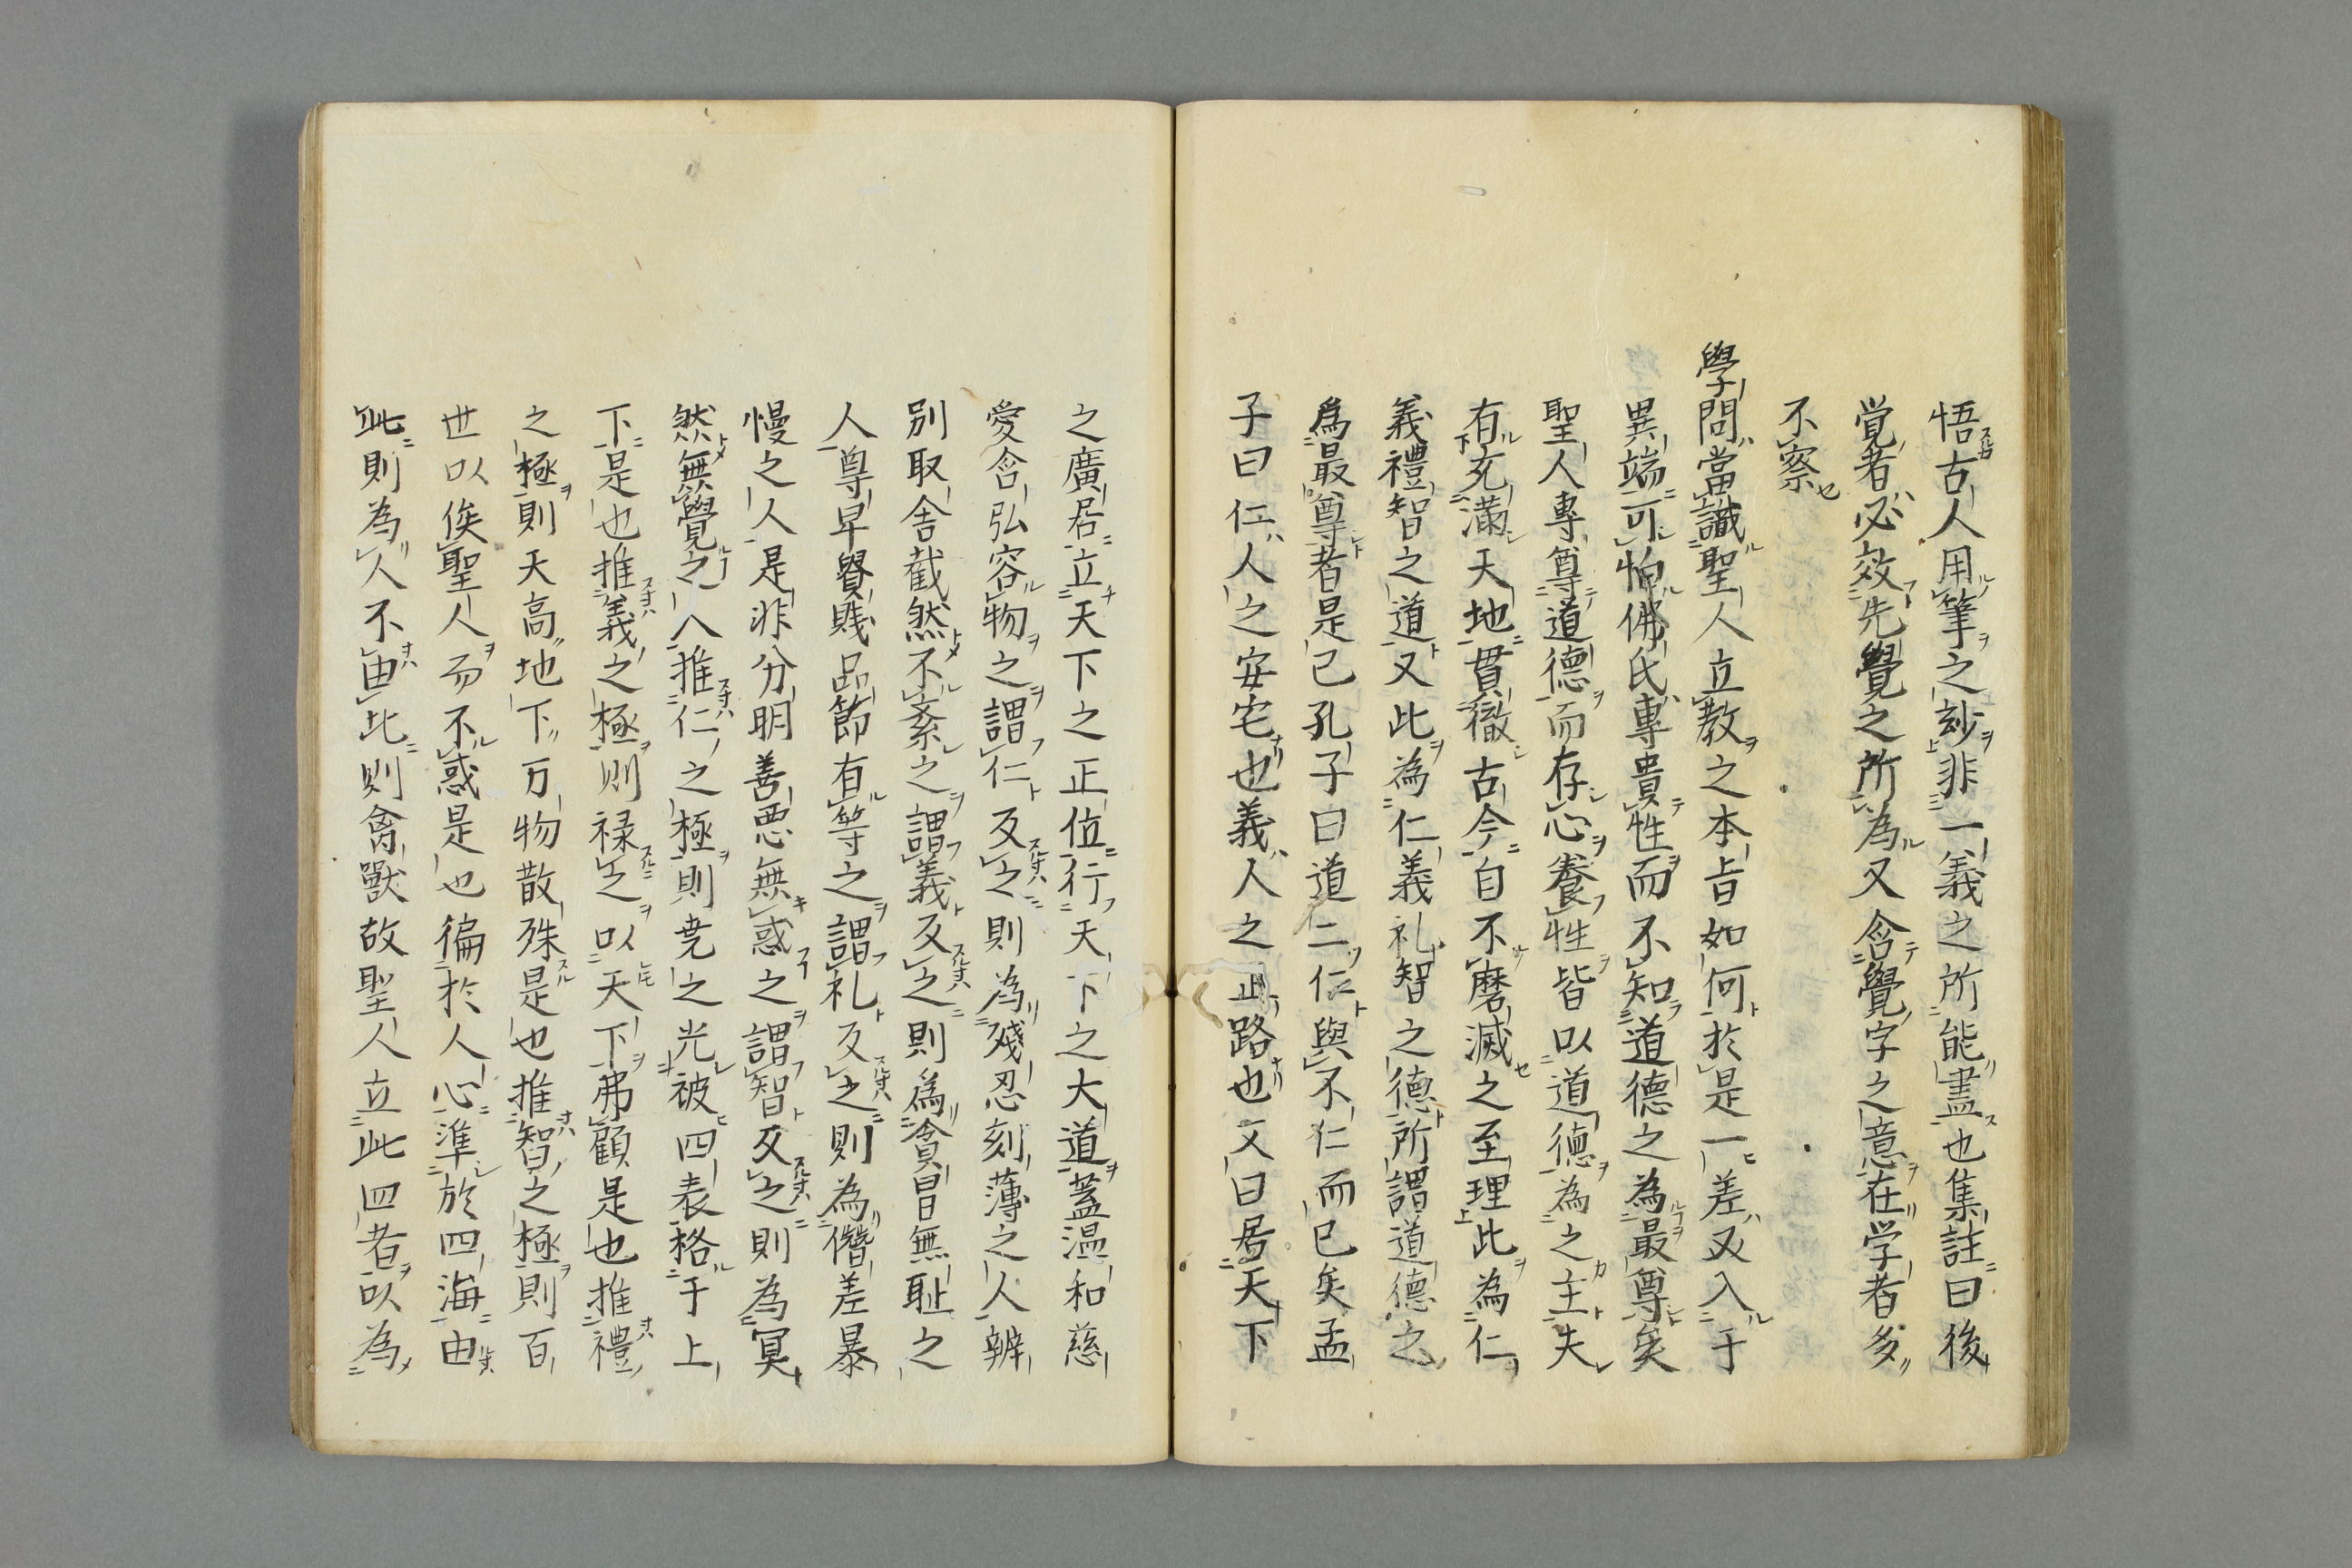 悟古人用筆之妙非一義之所能盡也集註曰後
覚者必效先覺之所為又含覺字之意在学者多
不察
學問當識聖人立教之本旨如何於是一差又入于
異端可怕佛氏專貴性而不知道德之為最尊矣
聖人專尊道德而存心養性皆以道德為之主夫
有充滿天地貫徹古今自不磨滅之至理此為仁
義禮智之道又此為仁義礼智之德所謂道德之
為最尊者是已孔子曰道二仁與不仁而已矣孟
子曰仁人之安宅也義人之正路也又曰居天下
之廣居立天下之正位行天下之大道蓋温和慈
愛含弘容物之謂仁反之則為殘忍刻薄之人辨
別取舎截然不紊之謂義反之則為貪冒無耻之
人尊卑貴賤品節有等之謂礼反之則為僭差暴
慢之人是非分明善悪無惑之謂智反之則為冥
然無覺之人推仁之極則尭之光被四表格于上
下是也推義之極則禄之以天下弗顧是也推禮
之極則天高地下万物散殊是也推智之極則百
世以俟聖人而不惑是也徧於人心準於四海由
此則為人不由此則禽獸故聖人立此四者以為